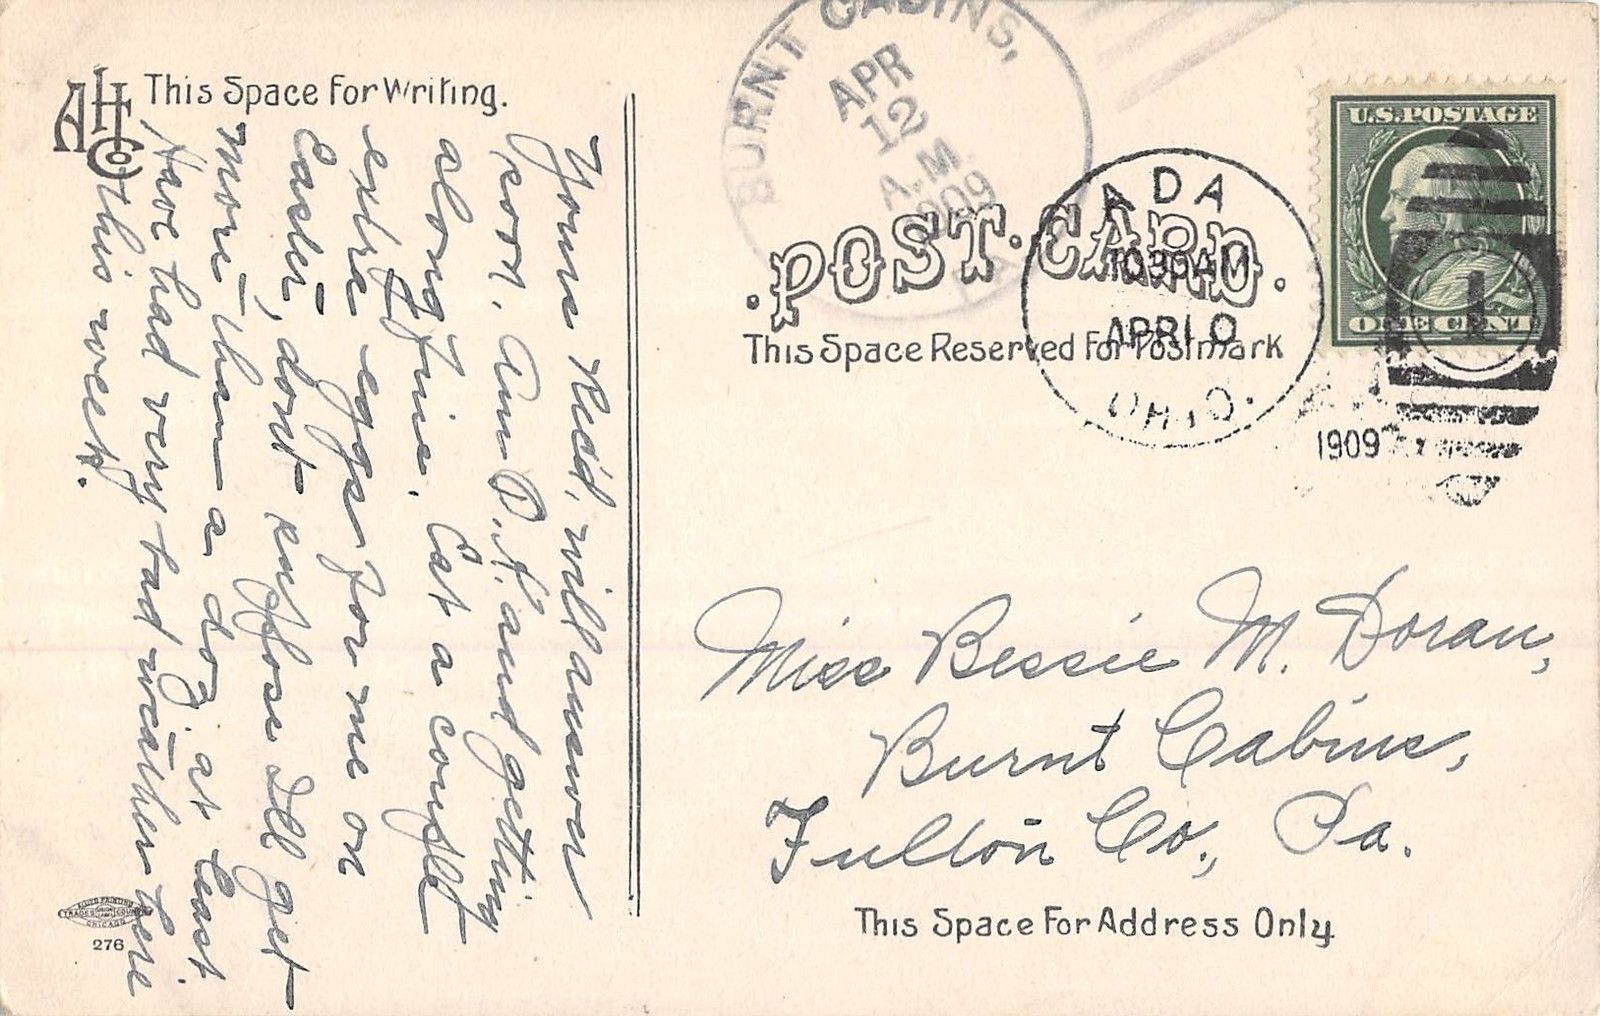 AHCo
This Space For Writing.
Yours Rec'd, will answer
soon. Am O.K. and getting
along fine. Eat a couple
extra eggs for me on
Easter, dont suppose Ill get
more than a doz, at least.
Have had very bad weather here
this week.
BURNT CABINS,
APR
12
A.M.
1909
PA.
ADA
1030AM
APR10
OHIO.
1909
U.S. POSTAGE
1
ONE CENT
POST CARD.
This Space Reserved For Postmark
Miss Bessie M. Doran,
Burnt Cabins,
Fulton Co., Pa.
This Space For Address Only.
TRADES UNION LABEL COUNCIL
CHICAGO
276